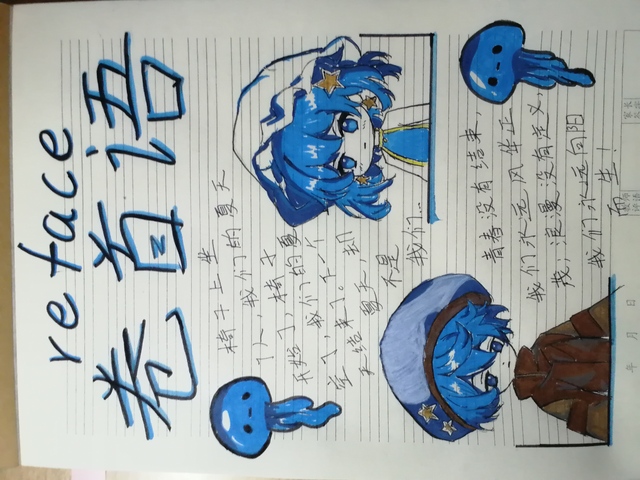 reface
卷首语
椅子上坐
了人，我们的夏天
开始了，椅子
空了，我们的夏
天结束了。下一个
夏天，却
不是
我们..
青春没有结束，
我们永远风华正
茂；浪漫没有定义，
我们永远向阳
而生！
年 月 日